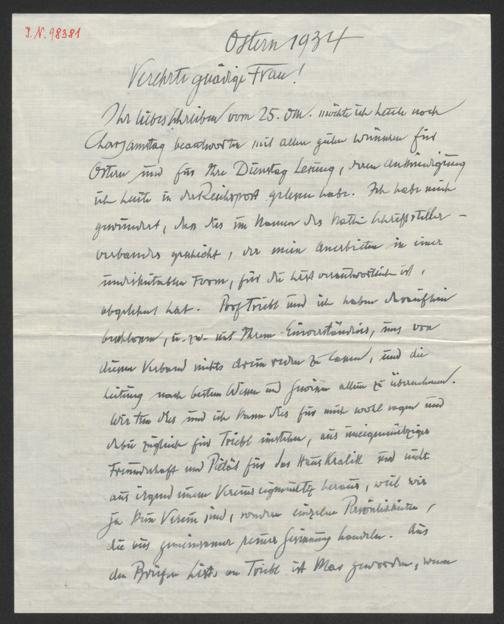 I.N. 98381
Ostern 1934
Verehrte gnädige Frau!
Ihr liebes Schreiben vom 25. möchte ich heute noch
Charsamstag beantworten mit allen guten Wünschen für
Ostern und für Ihre Dienstag Lesung, deren Ankündigung
ich heute in der Reichspost gelesen habe. Ich habe mich
gewundert, dass dies im Namen des Kath. Schriftsteller-
verbandes geschieht, der mein Anerbieten in einer
undiskutablen Form, für die verantwortlich ist,
abgelehnt hat. Prof Triebl und ich haben daraufhin
beschlossen, u. zw. mit Ihrem Einverständnis, uns von
diesem Verband nichts drein reden zu lassen, und die
Leitung nach bestem Wissen und Gewissen allein zu übernehmen.
Wir tun dies und ich kann dies für mich wohl sagen und
dabei zugleich für Triebl einstehen, aus uneigennütziger
Freundschaft und Pietät für das Haus Kralik und nicht
aus irgend einem Vereins heraus, weil wir
ja kein Verein sind, sondern einzelne Persönlichkeiten,
die aus gemeinsamer reiner Gesinnung handeln. Aus
den Briefen an Triebl ist klar geworden, wenn